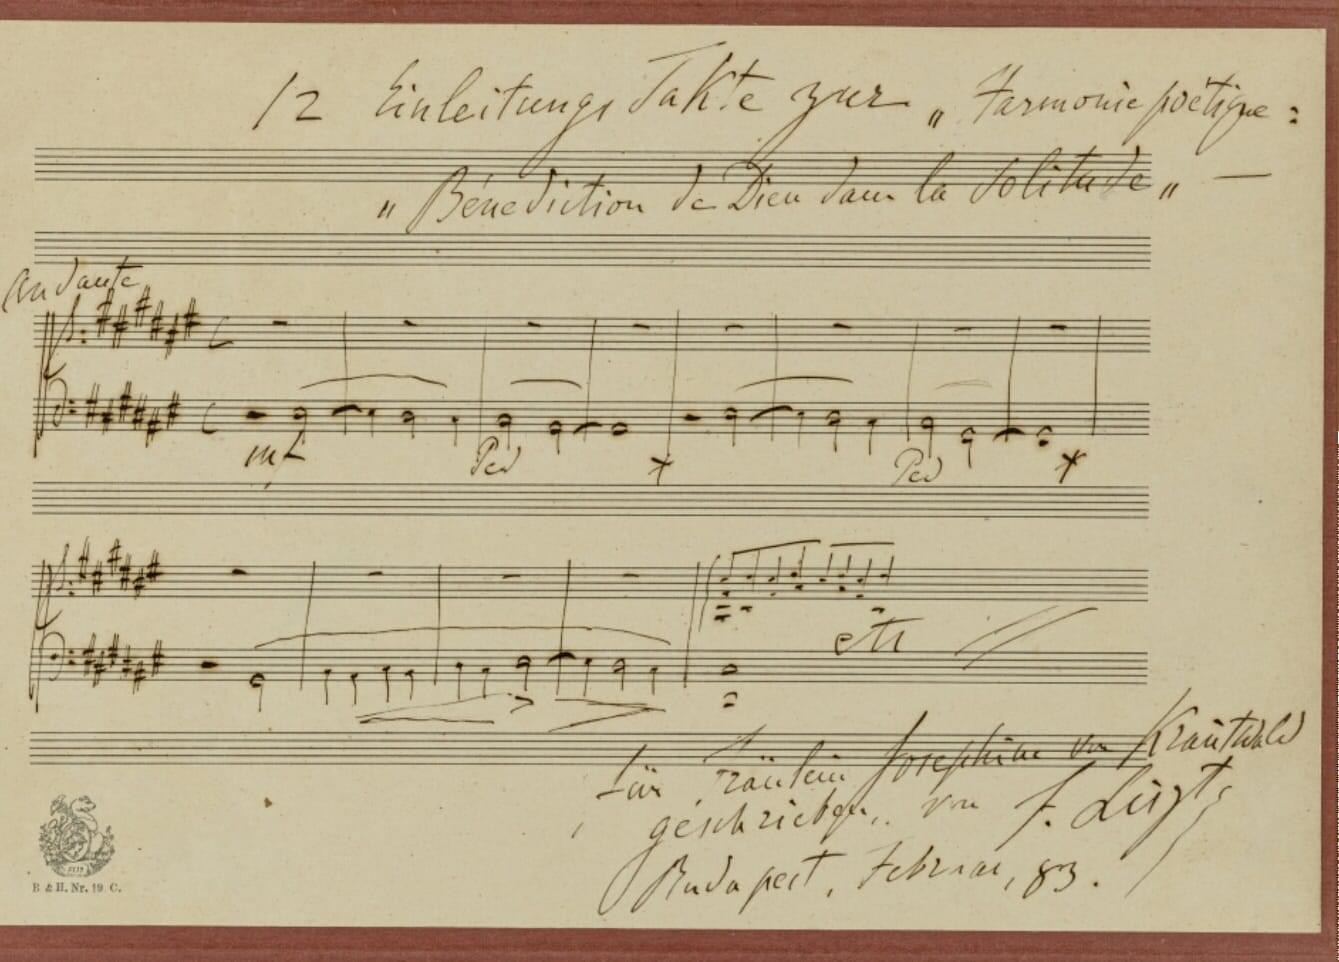 12 Einleitungs Takte zur „Harmonie poëtique:
„Bénediction de Dieu dans la Solitude„ —
Andante
mf Ped * Ped *
etc
Für Fräulein Josephine von Krautwald
geschrieben,. von F. Liszt,
Budapest, Februar, 83.
B & H. Nr. 19. C.